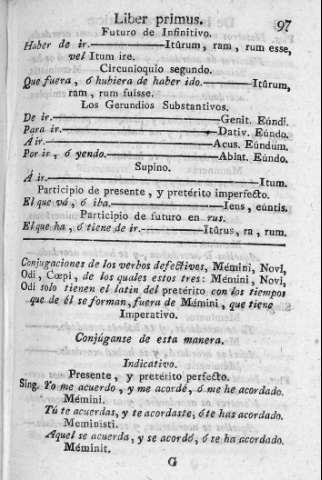 Liber primus. 97
Futuro de Infinitivo.
Haber de ir.——Itûrum, ram, rum esse,
vel Itum ire.
Circunloquio segundo.
Que fuera, ó hubiera de haber ido.——Itûrum,
ram, rum fuisse.
Los Gerundios Substantivos.
De ir.——Genit. Eúndi.
Para ir.——Dativ. Eúndo.
A ir.——Acus. Eúndum.
Por ir, ó yendo.——Ablat. Eúndo.
Supino.
A ir.——Itum.
Participio de presente, y pretérito imperfecto.
El que vá, ó iba.——Iens, eúntis.
Participio de futuro en rus.
El que ha, ó tiene de ir.——Itûrus, ra, rum.
Conjugaciones de los verbos defectivos, Mémini, Novi,
Odi, Cœpi, de los quales estos tres: Mémini, Novi,
Odi solo tienen el latin del pretérito con los tiempos
que de él se forman, fuera de Mémini, que tiene
Imperativo.
Conjúganse de esta manera.
Indicativo.
Presente, y pretérito perfecto.
Sing. Yo me acuerdo, y me acordé, ó me he acordado.
Mémini.
Tú te acuerdas, y te acordaste, ó te has acordado.
Meministi.
Aquel se acuerda, y se acordó, ó se ha acordado.
Méminit.
G